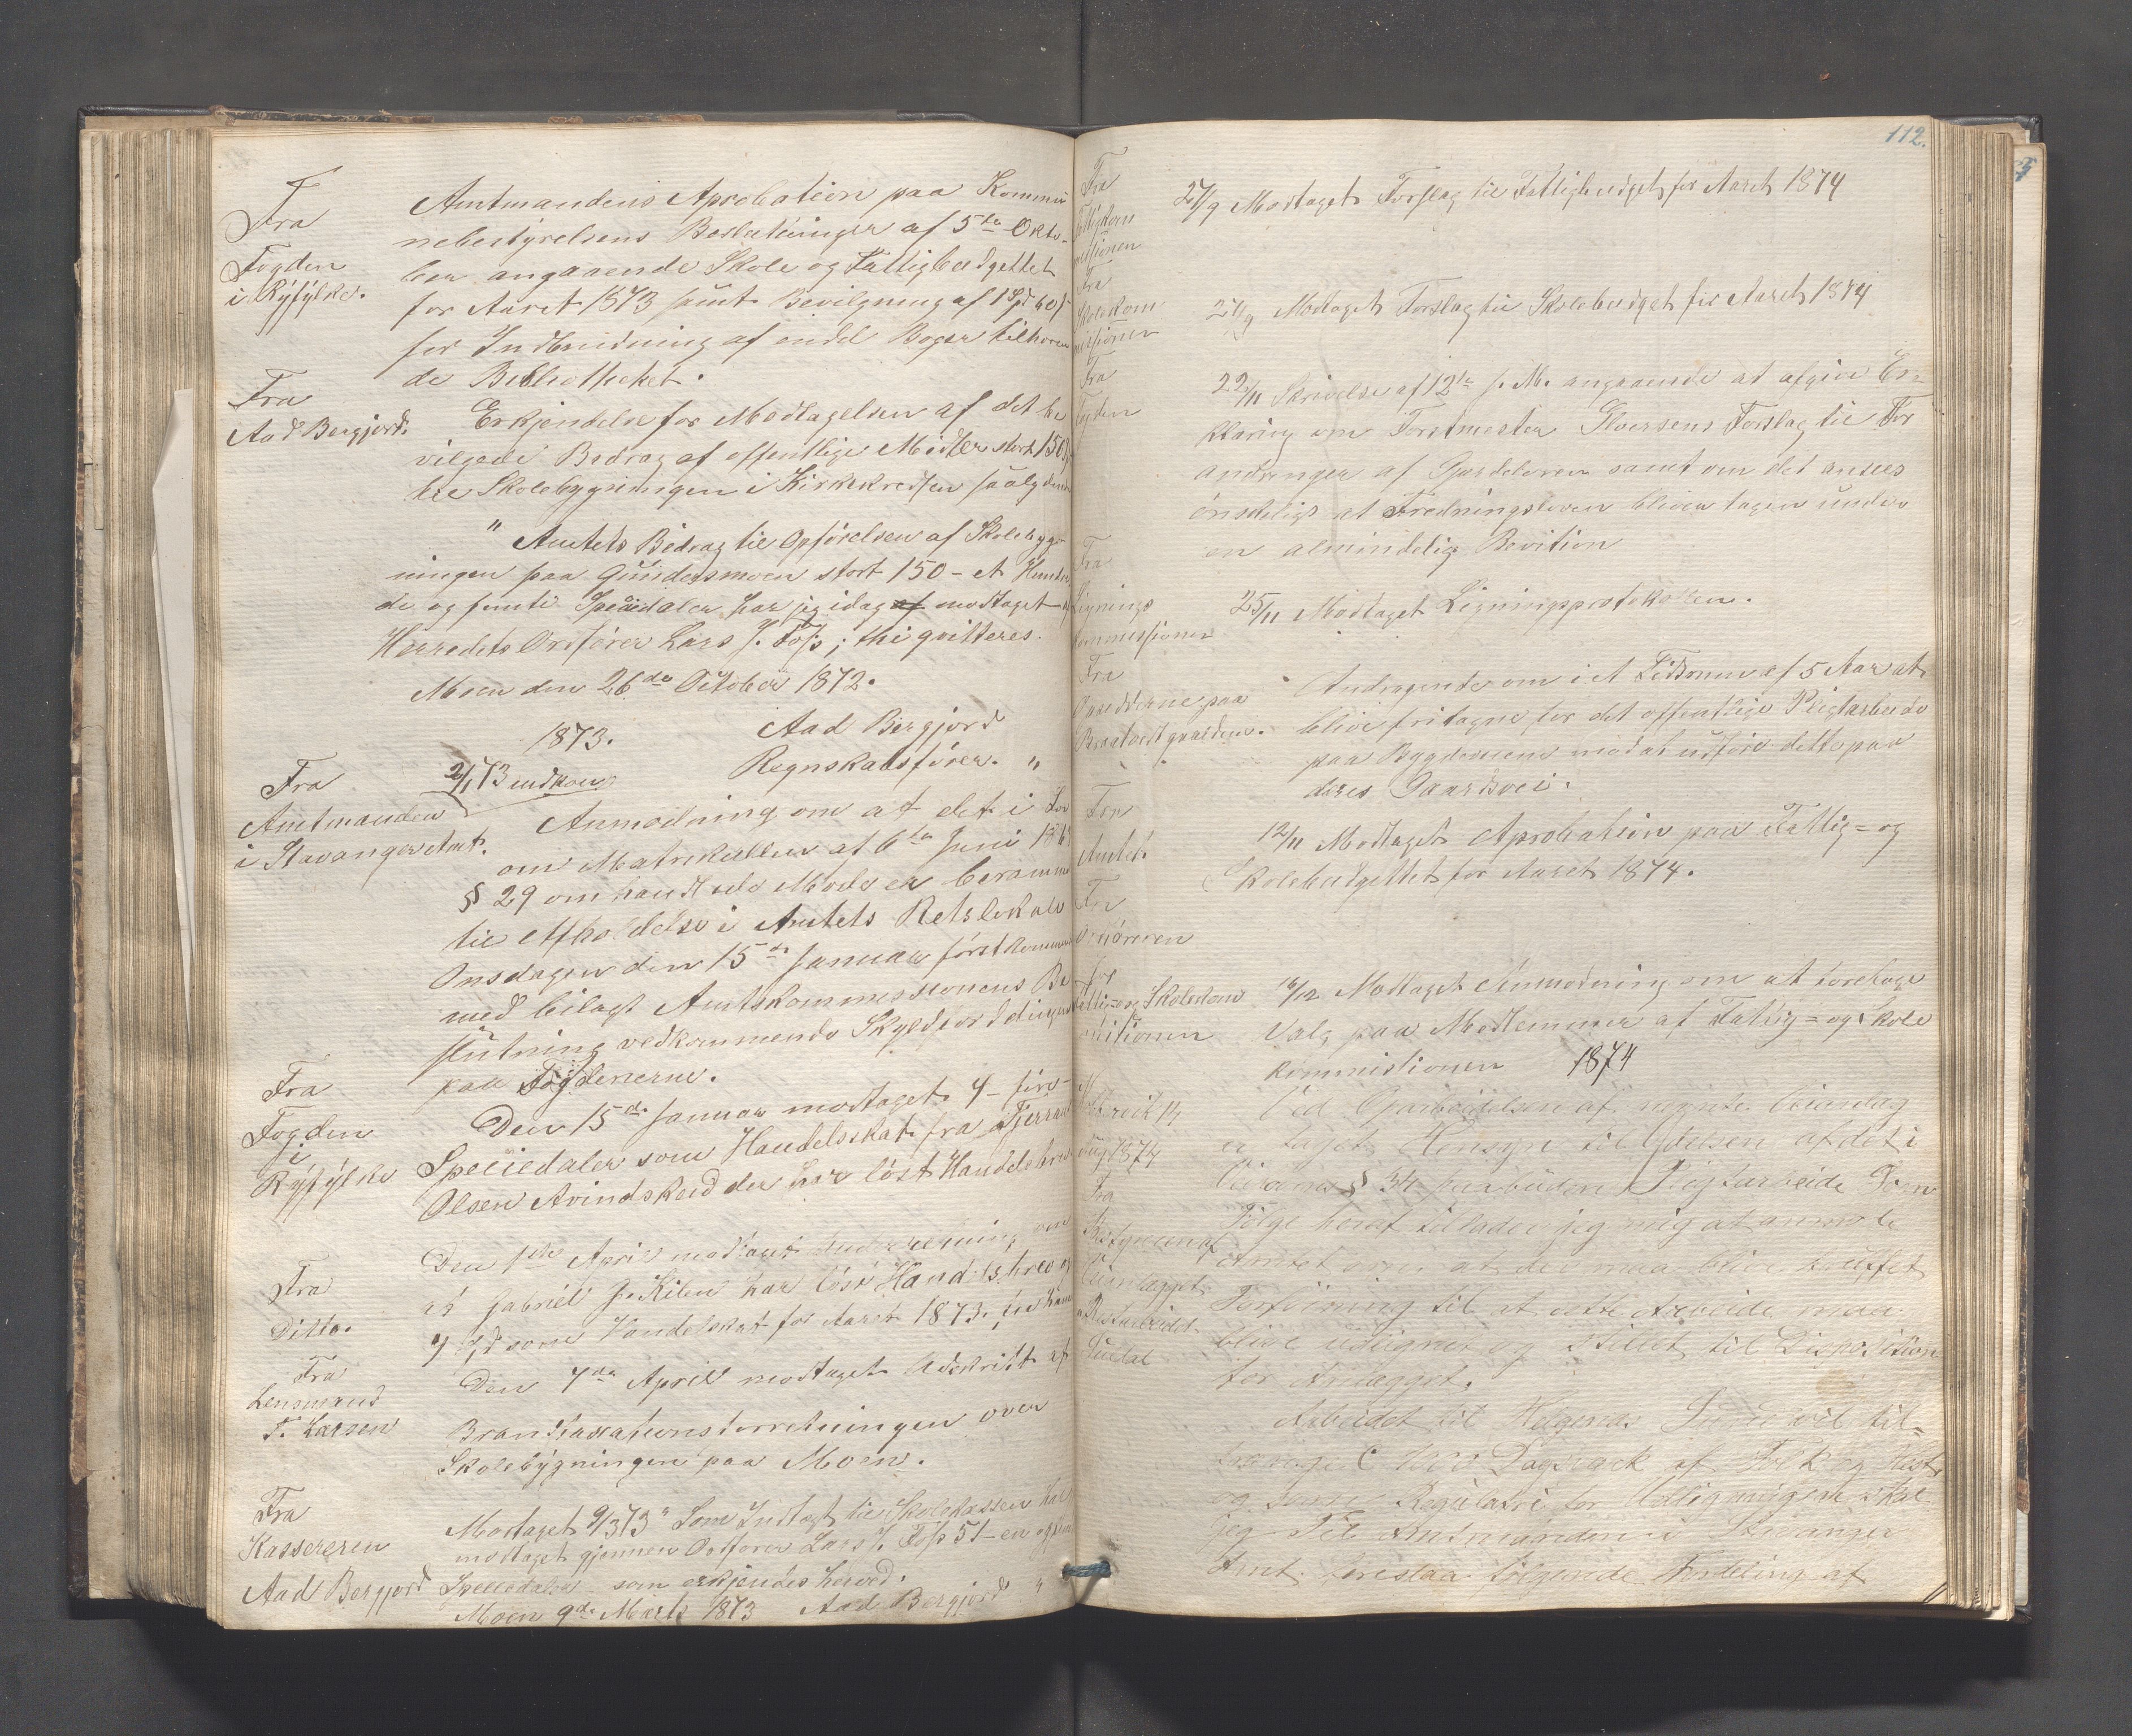 Fra
Fogden
i Ryfylke.
Amtmandens Aprobation paa Kommu
nebestyrelsens Beslutninger af 5te Okto-
ber angaaende Skole og Fattigbudgettet
for Aaret 1873 samt Bevilgning af 1 Spd 60 s
for Indbindning af endel Bøger tilhøren
de Bibliotheket.
Fra
Aad Bergjord.
Erkjendelse for Modtagelsen af det be
vilgede Bidrag af offentlige Midler stort 150
til Skolebygningen i Kirkekredsen saalydende
" Amtets Bidrag til Opførelsen af Skolebyg-
ningen paa Gundersmoen stort 150 - et Hundre
de og femti Speciedaler har jeg idag af modtaget af
Herredets Ordfører Lars J. Foss; thi qvitteres.
Moen den 26de October 1872.
Aad Bergjord
Regnskabsfører. "
1873.
2/1 73 indkom
Fra
Amtmanden
i Stavanger Amt.
Anmodning om at det i Lov
om Matrikullen af 6te Juni 1863
§ 29 omhandlede Møde er berammet
til Afholdelse i Amtets Retslokale
Onsdagen den 15de Januar førstkommende
med bilagt Amtskommissionens Be
slutning vedkommende Skyldfordelingen
paa Fogderierne.
Fra
Fogden
i
Ryfylke
Den 15de Januar modtaget 4 - fire -
Speciedaler som Handelsskat fra Tjerran
Olsen Avindskeid der har løst Handelsbrev
Fra
Ditto.
Den 1ste April modtaget Underretning om
at Gabriel J. Kilen har løst Handelsbrev og
4 Spd som Handelskat for Aaret 1873.
Fra
Lensmand
T. Larsen
Den 7de April modtaget Udskrift af
Brandtaxationsforretningen over
Skolebygningen paa Moen.
Fra
Kassereren
Aad Bergjord
Modtaget 9/3 73 " Som Indtægt til Skolekassen har
modtaget gjennem Ordfører Lars J. Foss 51 - en og femti
Speciedaler - som erkjendes herved.
Moen 9de Marts 1873 Aad Bergjord "
112.
Fra
Fattigkom
missionen
27/9 Modtaget Forslag til Fattigbudget for Aaret 1874
Fra
Skolekom
missionen
27/9 Modtaget Forslag til Skolebudget for Aaret 1874
Fra
Fogden
22/11 Skrivelse af 12te s. M. angaaende at afgive Er-
klæring om Forstmester Gløersens Forslag til For
andringer af Gjærdeloven samt om det ansees
ønskeligt at Fredningsloven bliver tagen under
en almindelig Revition
Fra
Lignings
kommissionen
25/11 Modtaget Ligningsprotokollen.
Fra
Opsidderne paa
Braatveitgaardene.
Andragende om i et Tidsrum af 5 Aar at
blive fritagne for det offentlige Pligtarbeide
paa Bygdeveiene mod at udføre dette paa
deres Gaardsvei.
Fra
Amtet
12/11 Modtaget Aprobation paa Fattig- og
Skolebudgettet for Aaret 1874.
Fra
Ordføreren
for
Fattig- og Skolekom
mitionen
16/12 Modtaget Anmodning om at foretage
Valg paa Medlemmer af Fattig- og Skole
kommistionen
1874
Ved Oparbeidelsen af nævnte Veianlæg
er taget Hensyn til Ydelsen af det i
Veilovens § 34 paabudne Pligtarbeide Som
Følge heraf tillader jeg mig at anmode
Amtet om at der maa blive truffet
Forføining til at dette Arbeide maa
blive udlignet og stillet til Disposition
for Anlægget.
Fra
Bestyreren af
Veianlægget
Arbeidet til Helgenes Sund vil til-
trænge C 1000 Dagværk af Folk og Hest
og som Regulativ for Udligningen skal
jeg til Amtmanden i Stavanger
Amt foreslaa følgende Fordeling af